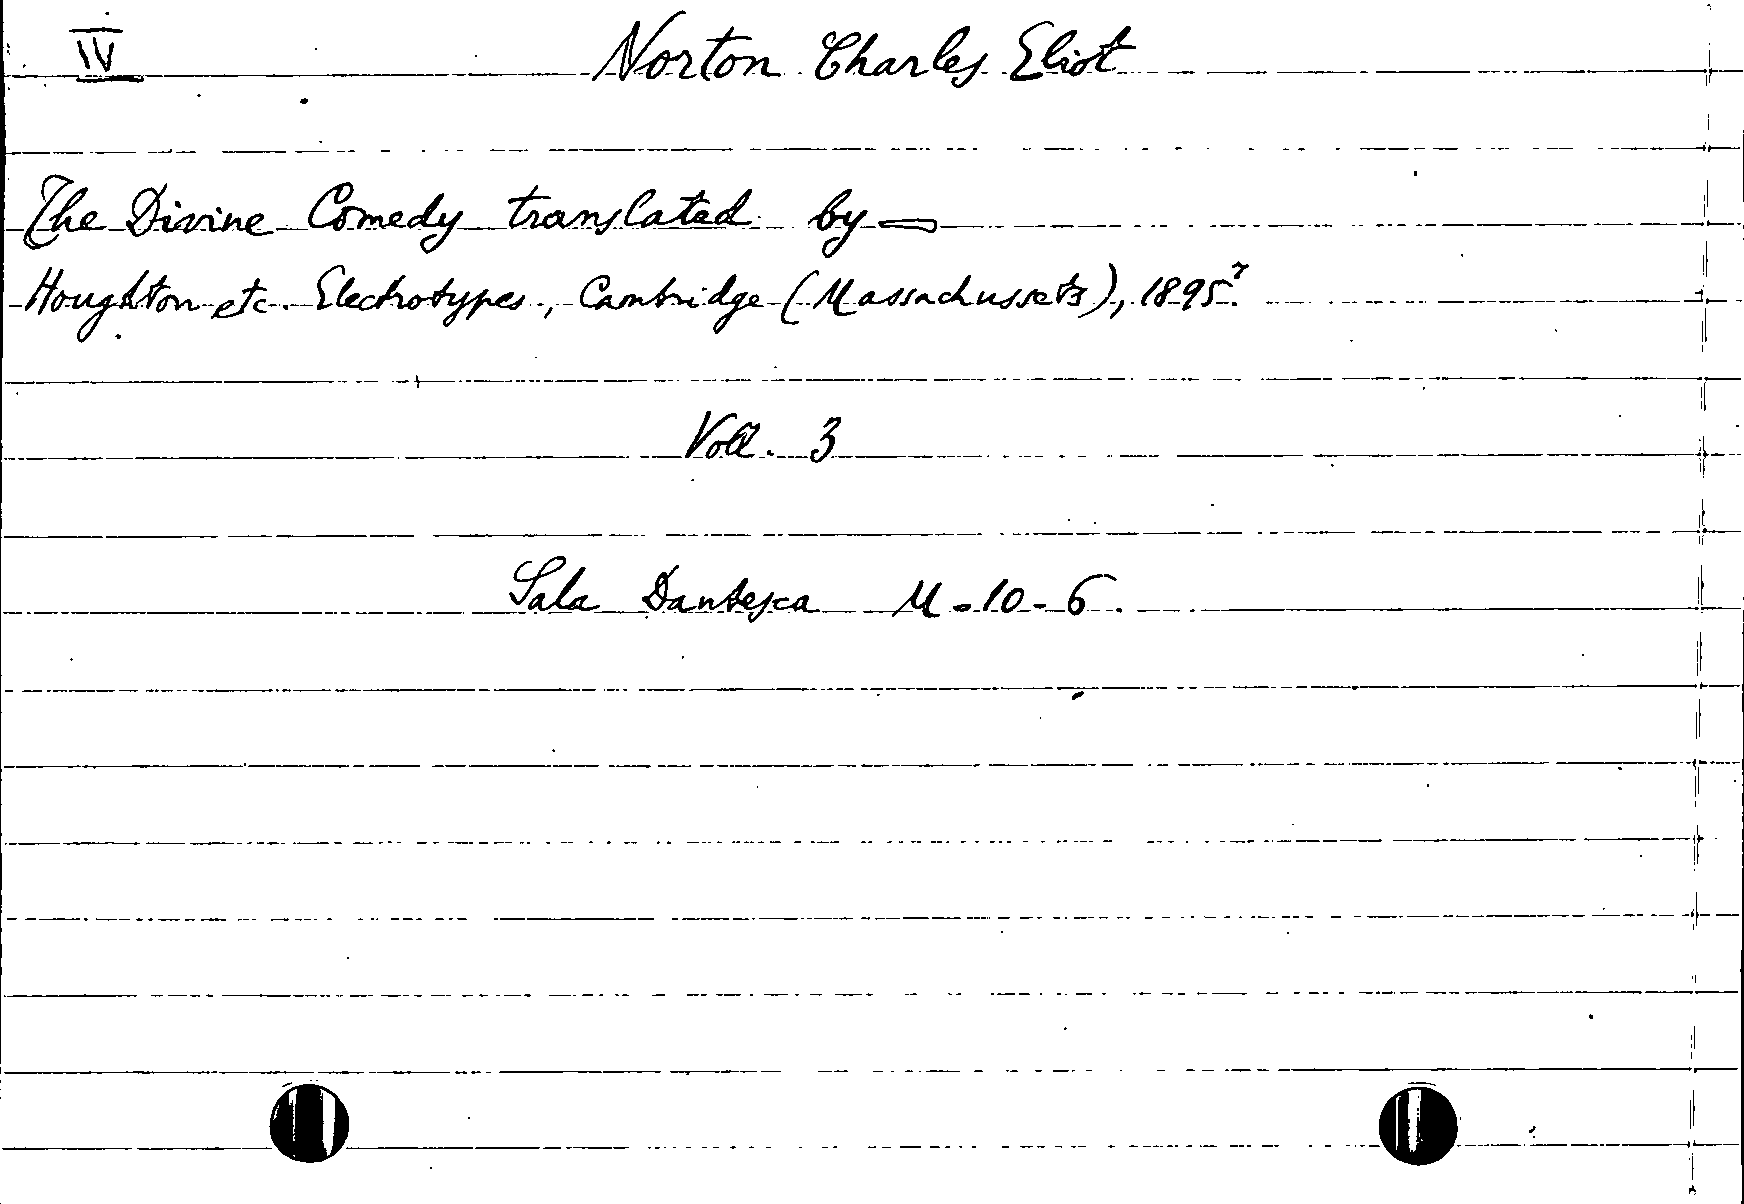 IV
Norton Charles Eliot
The Divine Comedy translated by —
Houghton etc. Electrotypes, Cambridge (Massachussets), 1895⁷.
Voll. 3
Sala Dantesca M-10-6.